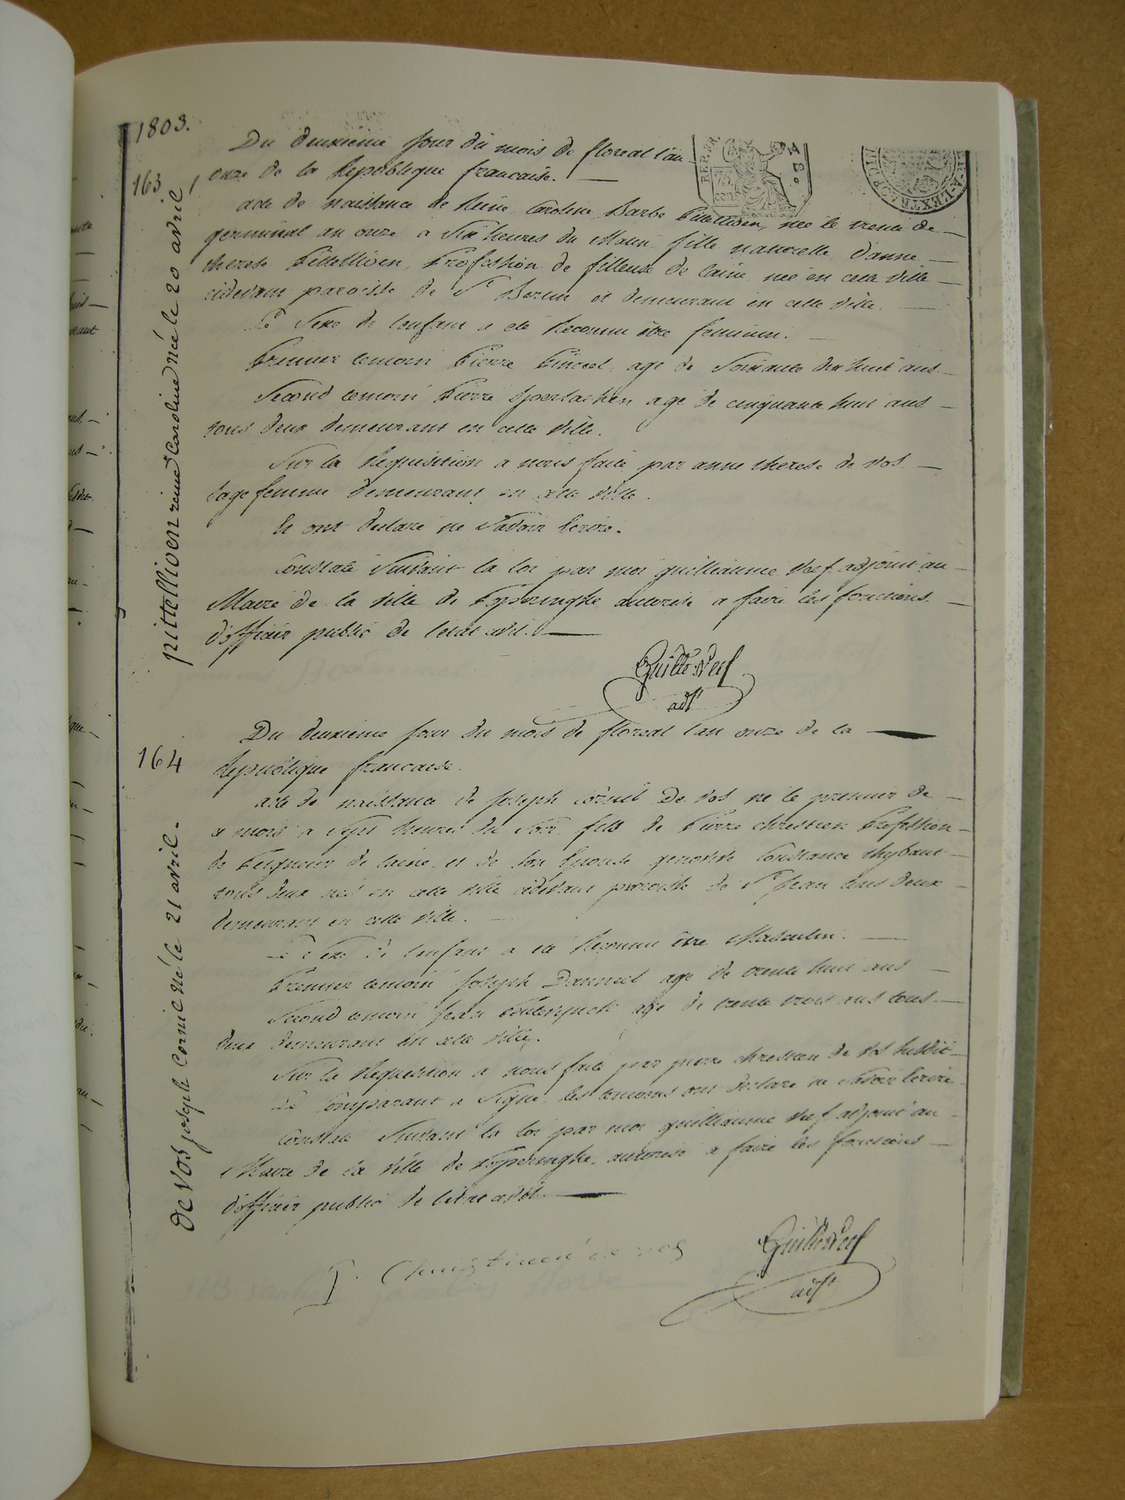 1803.
163
pittellioen reine Caroline née le 20 avril
Du deuxieme jour du mois de floreal l'an
onze de la Republique francaise.
acte de naissance de Reine Caroline Barbe Pittellioen, née le trente de
germinal an onze a Six heures du Matin fille naturelle d'anne
therese Pittellioen, Profession de fileuse de laine née en cette ville
cidevant paroisse de St Bertin et demeurant en cette ville.
Le Sexe de l'enfant a été Reconnu être feminin.
Premier temoin Pierre agé de Soixante dix huit ans
Second temoin Pierre agé de cinquante huit ans
tous deux demeurant en cette ville.
Sur la Requisition a nous faite par anne therese de vos
sage femme demeurant en cette ville.
et ont declaré ne Savoir Ecrire.
Constaté Suivant la loi par moi guillianme Nef adjoint au
Maire de la ville de Poperinghe autorisé a faire les fonctions
d'officier public de l'etat civil.
Guille: Neef
adjt
164
de Vos joseph Cornil né le 21 avril.
Du deuxieme jour du mois de floreal l'an onze de la
Republique francaise.
acte de naissance de joseph cornil De vos né le premier de
ce mois a Sept heures du Soir, fils de Pierre chretien Profession
de Peigneur de laine, et de Son Epouse Constance
tous deux nés en cette ville cidevant paroisse de St Jean tous deux
demeurant en cette ville.
Le Sexe de l'enfant a été Reconnu être Masculin.
Premier temoin joseph agé de trente huit ans
Second temoin jean agé de trente trois ans tous
deux demeurant en cette ville.
Sur la Requisition a nous faite par pierre chretien de vos susdit
Le Comparant a Signé les temoins ont declaré ne Savoir Ecrire
Constaté Suivant la loi par moi guillianme Nef adjoint au
Maire de la Ville de Poperinghe, autorisé a faire les fonctions
d'officier public de l'etat civil.
P. de vos
Guille: Neef
adjt